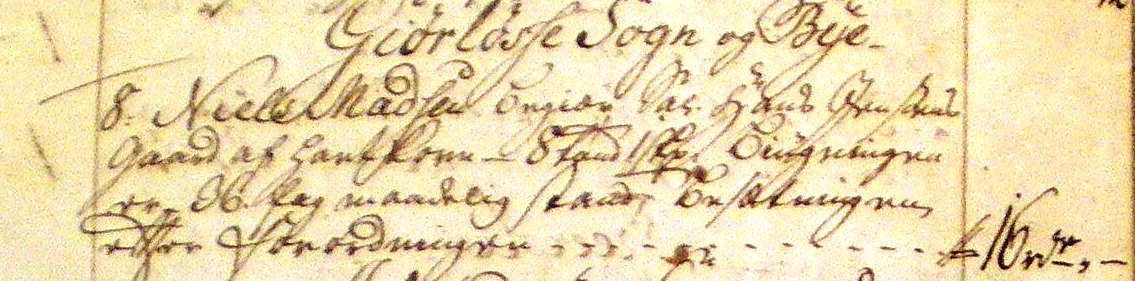 Giörlösse Sogn og Bÿe
8. Niels Madsen begiær Sal: Hans Jensens
Gaard af Hartkorn – 8 Tønd 1 Skp. Bÿgningen
er 36 fag maadelig stand, Besætningen
efter Forordningen 16 rdr